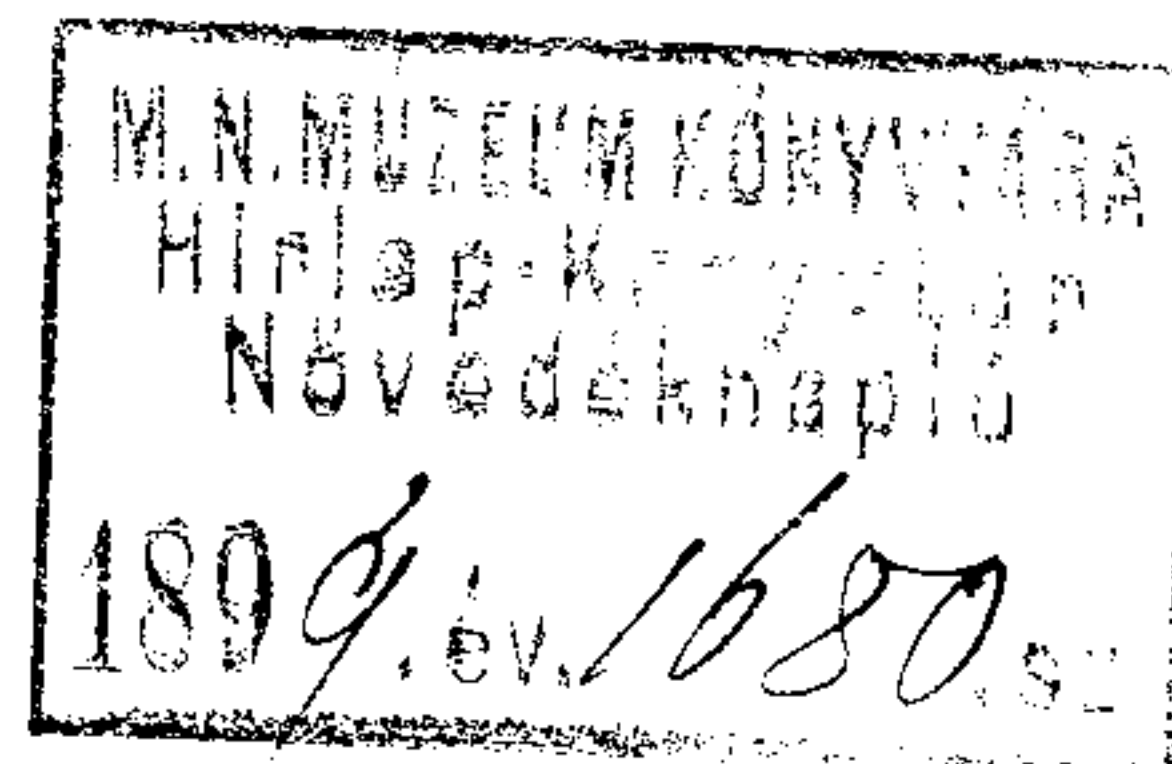 M. N. MUZEUM KÖNYVTÁRA
Hirlap-K
Növedéknapló
1899. év. 1680. sz